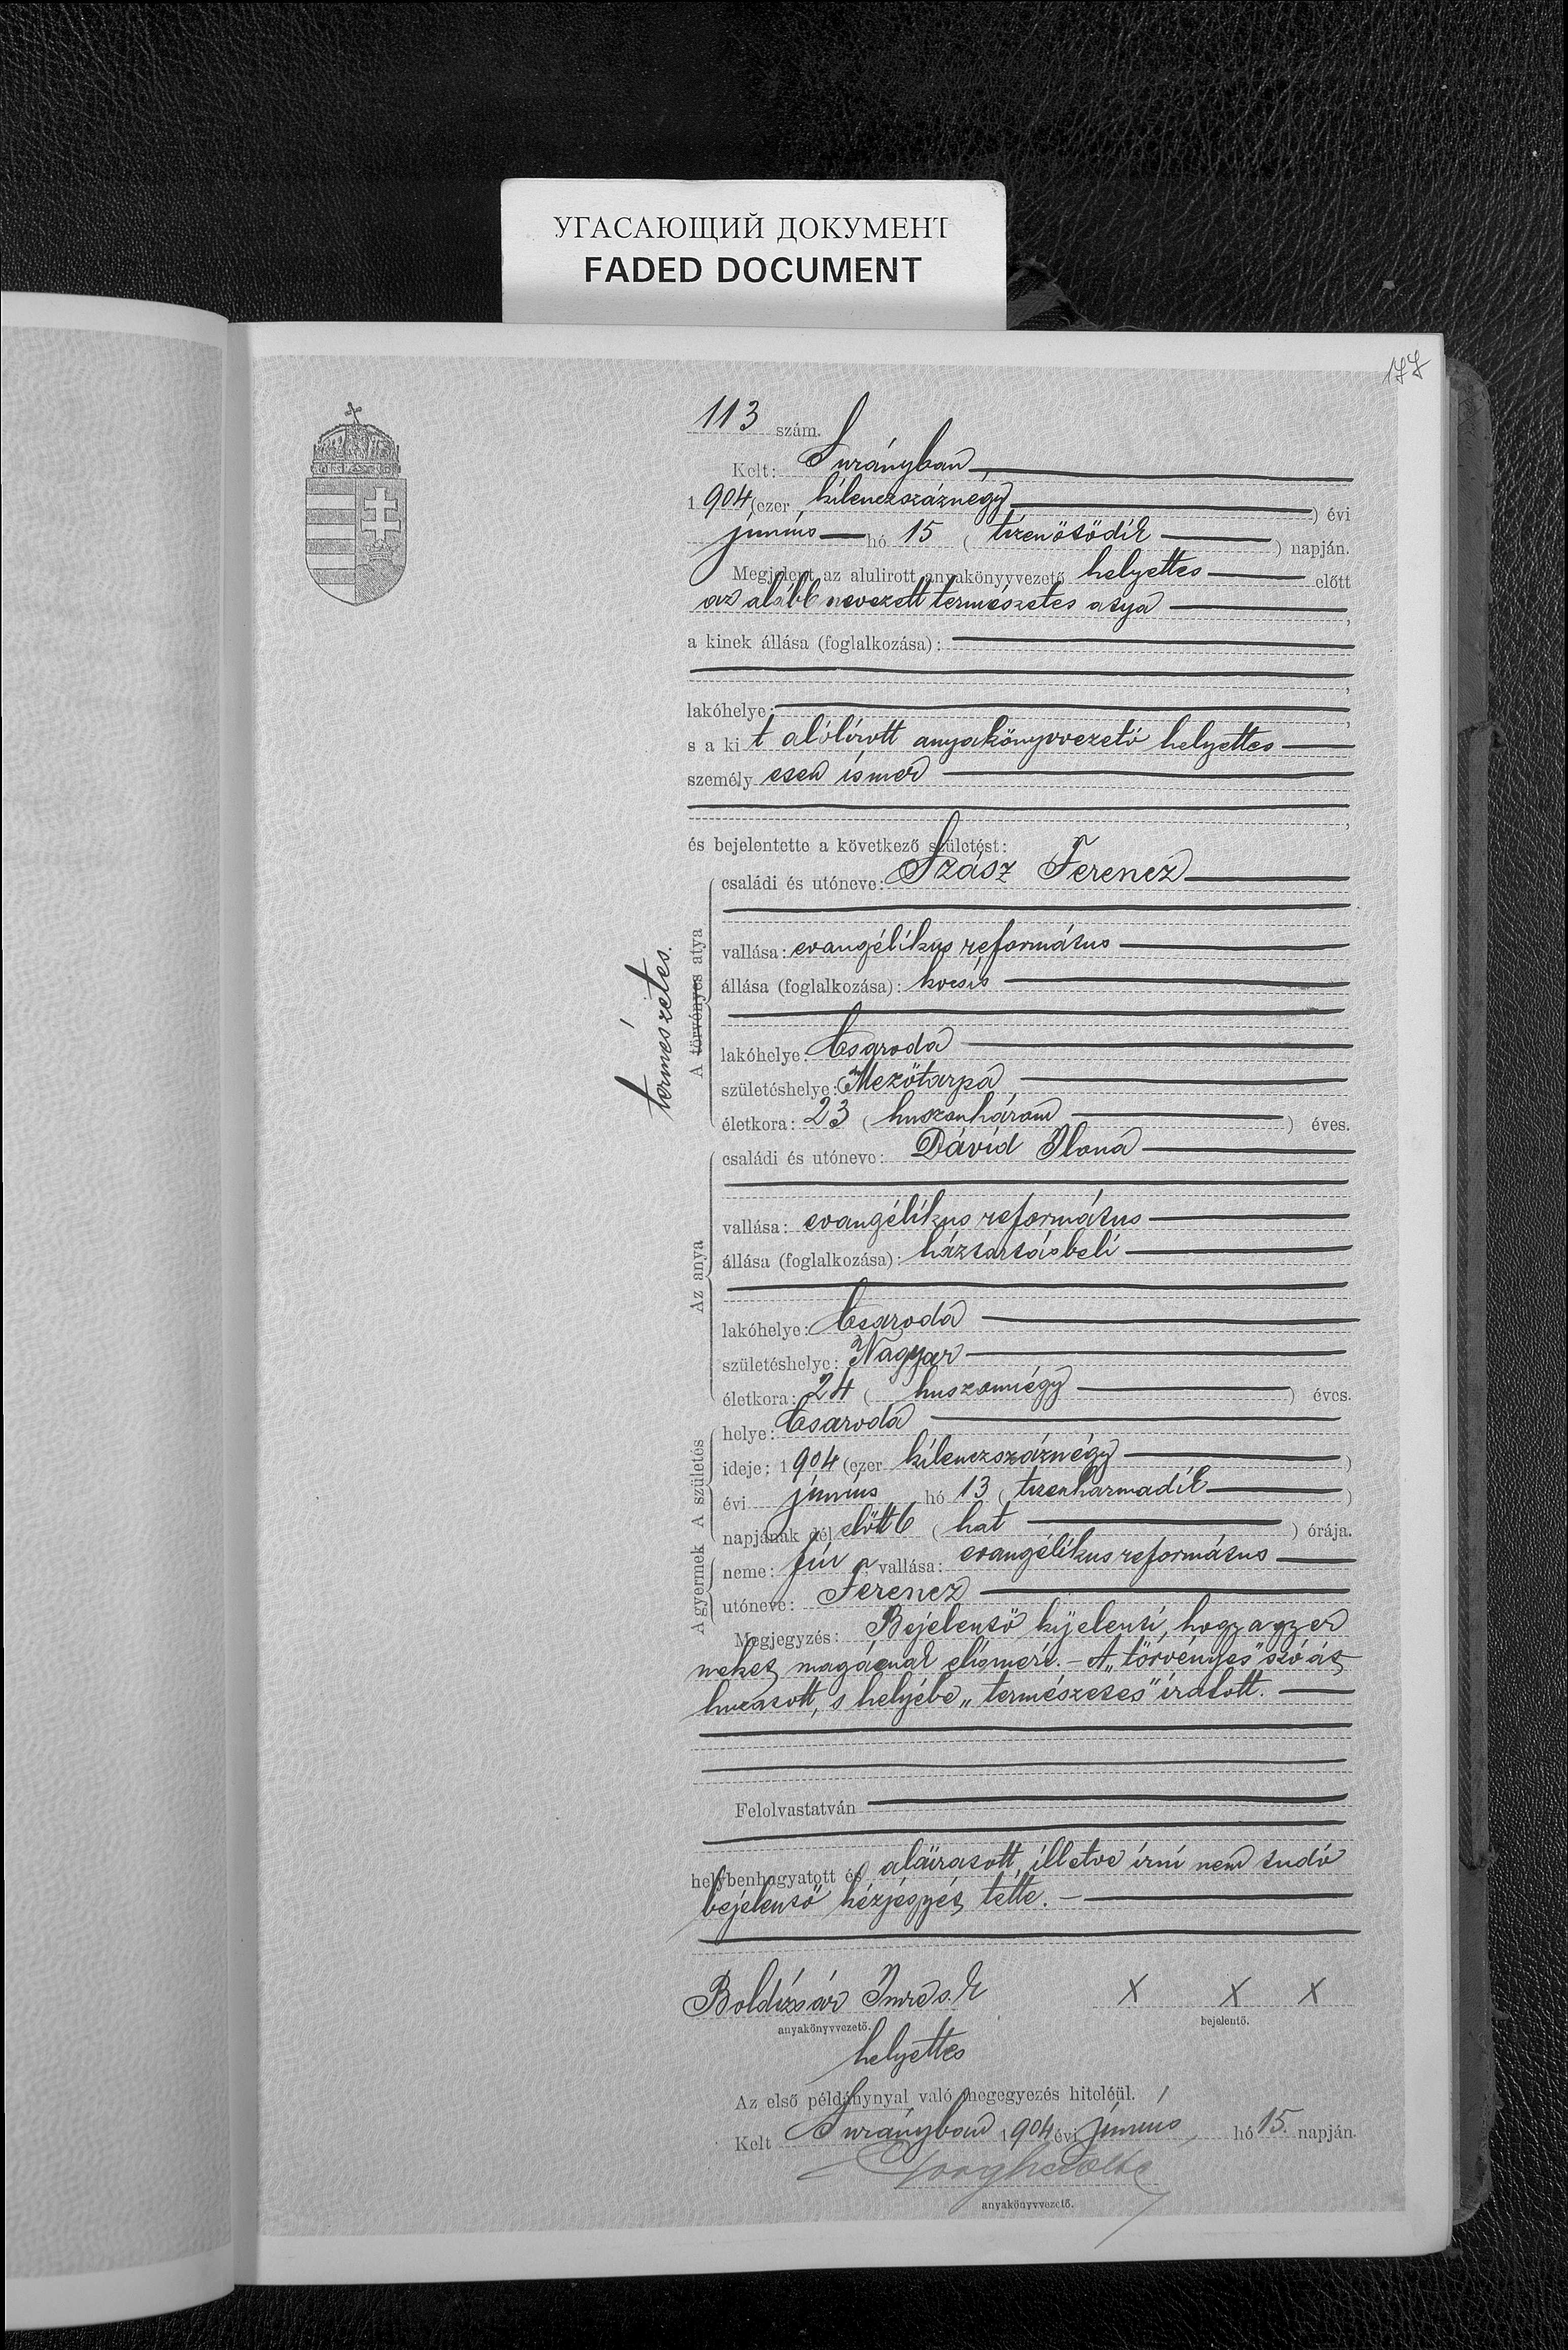 УГАСАЮЩИЙ ДОКУМЕНТ
FADED DOCUMENT
177
113 szám.
Kelt: Surányban,
1904 (ezer kilenczszáznégy) évi
június hó 15 (tizenötödik) napján.
Megjelent az alulirott anyakönyvvezető helyettes előtt
az alább nevezett természetes atya,
a kinek állása (foglalkozása):
,
lakóhelye:,
s a kit alólírott anyakönyvvezető helyettes
személyesen ismer
,
és bejelentette a következő születést:
természetes.
A törvényes atya
családi és utóneve: Szász Ferencz
vallása: evangélikus református
állása (foglalkozása): kocsis
lakóhelye: Csaroda
születéshelye: Mezőtarpa
életkora: 23 (huszonhárom) éves.
Az anya
családi és utóneve: Dávid Ilona
vallása: evangélikus református
állása (foglalkozása): háztartásbeli
lakóhelye: Csaroda
születéshelye: Nagyar
életkora: 24 (huszonnégy) éves.
A születés
helye: Csaroda
ideje: 1904 (ezer kilenczszáznégy)
évi június hó 13 (tizenharmadik)
napjának dél előtt 6 (hat) órája.
A gyermek
neme: fiú a vallása: evangélikus református
utóneve: Ferencz
Megjegyzés: Bejelentő kijelenti, hogy a gyer
meket magáénak elismeri. - A „törvényes" szó át
huzatott, s helyébe „természetes" iratott.
Felolvastatván
helybenhagyatott és aláiratott, illetve írni nem tudó
bejelentő kézjegyét tette. -
Boldizsár Imre s. k X X X
anyakönyvvezető. bejelentő.
helyettes
Az első példánynyal való megegyezés hiteléül.
Kelt Surányban 1904 évi június hó 15. napján.
anyakönyvvezető.